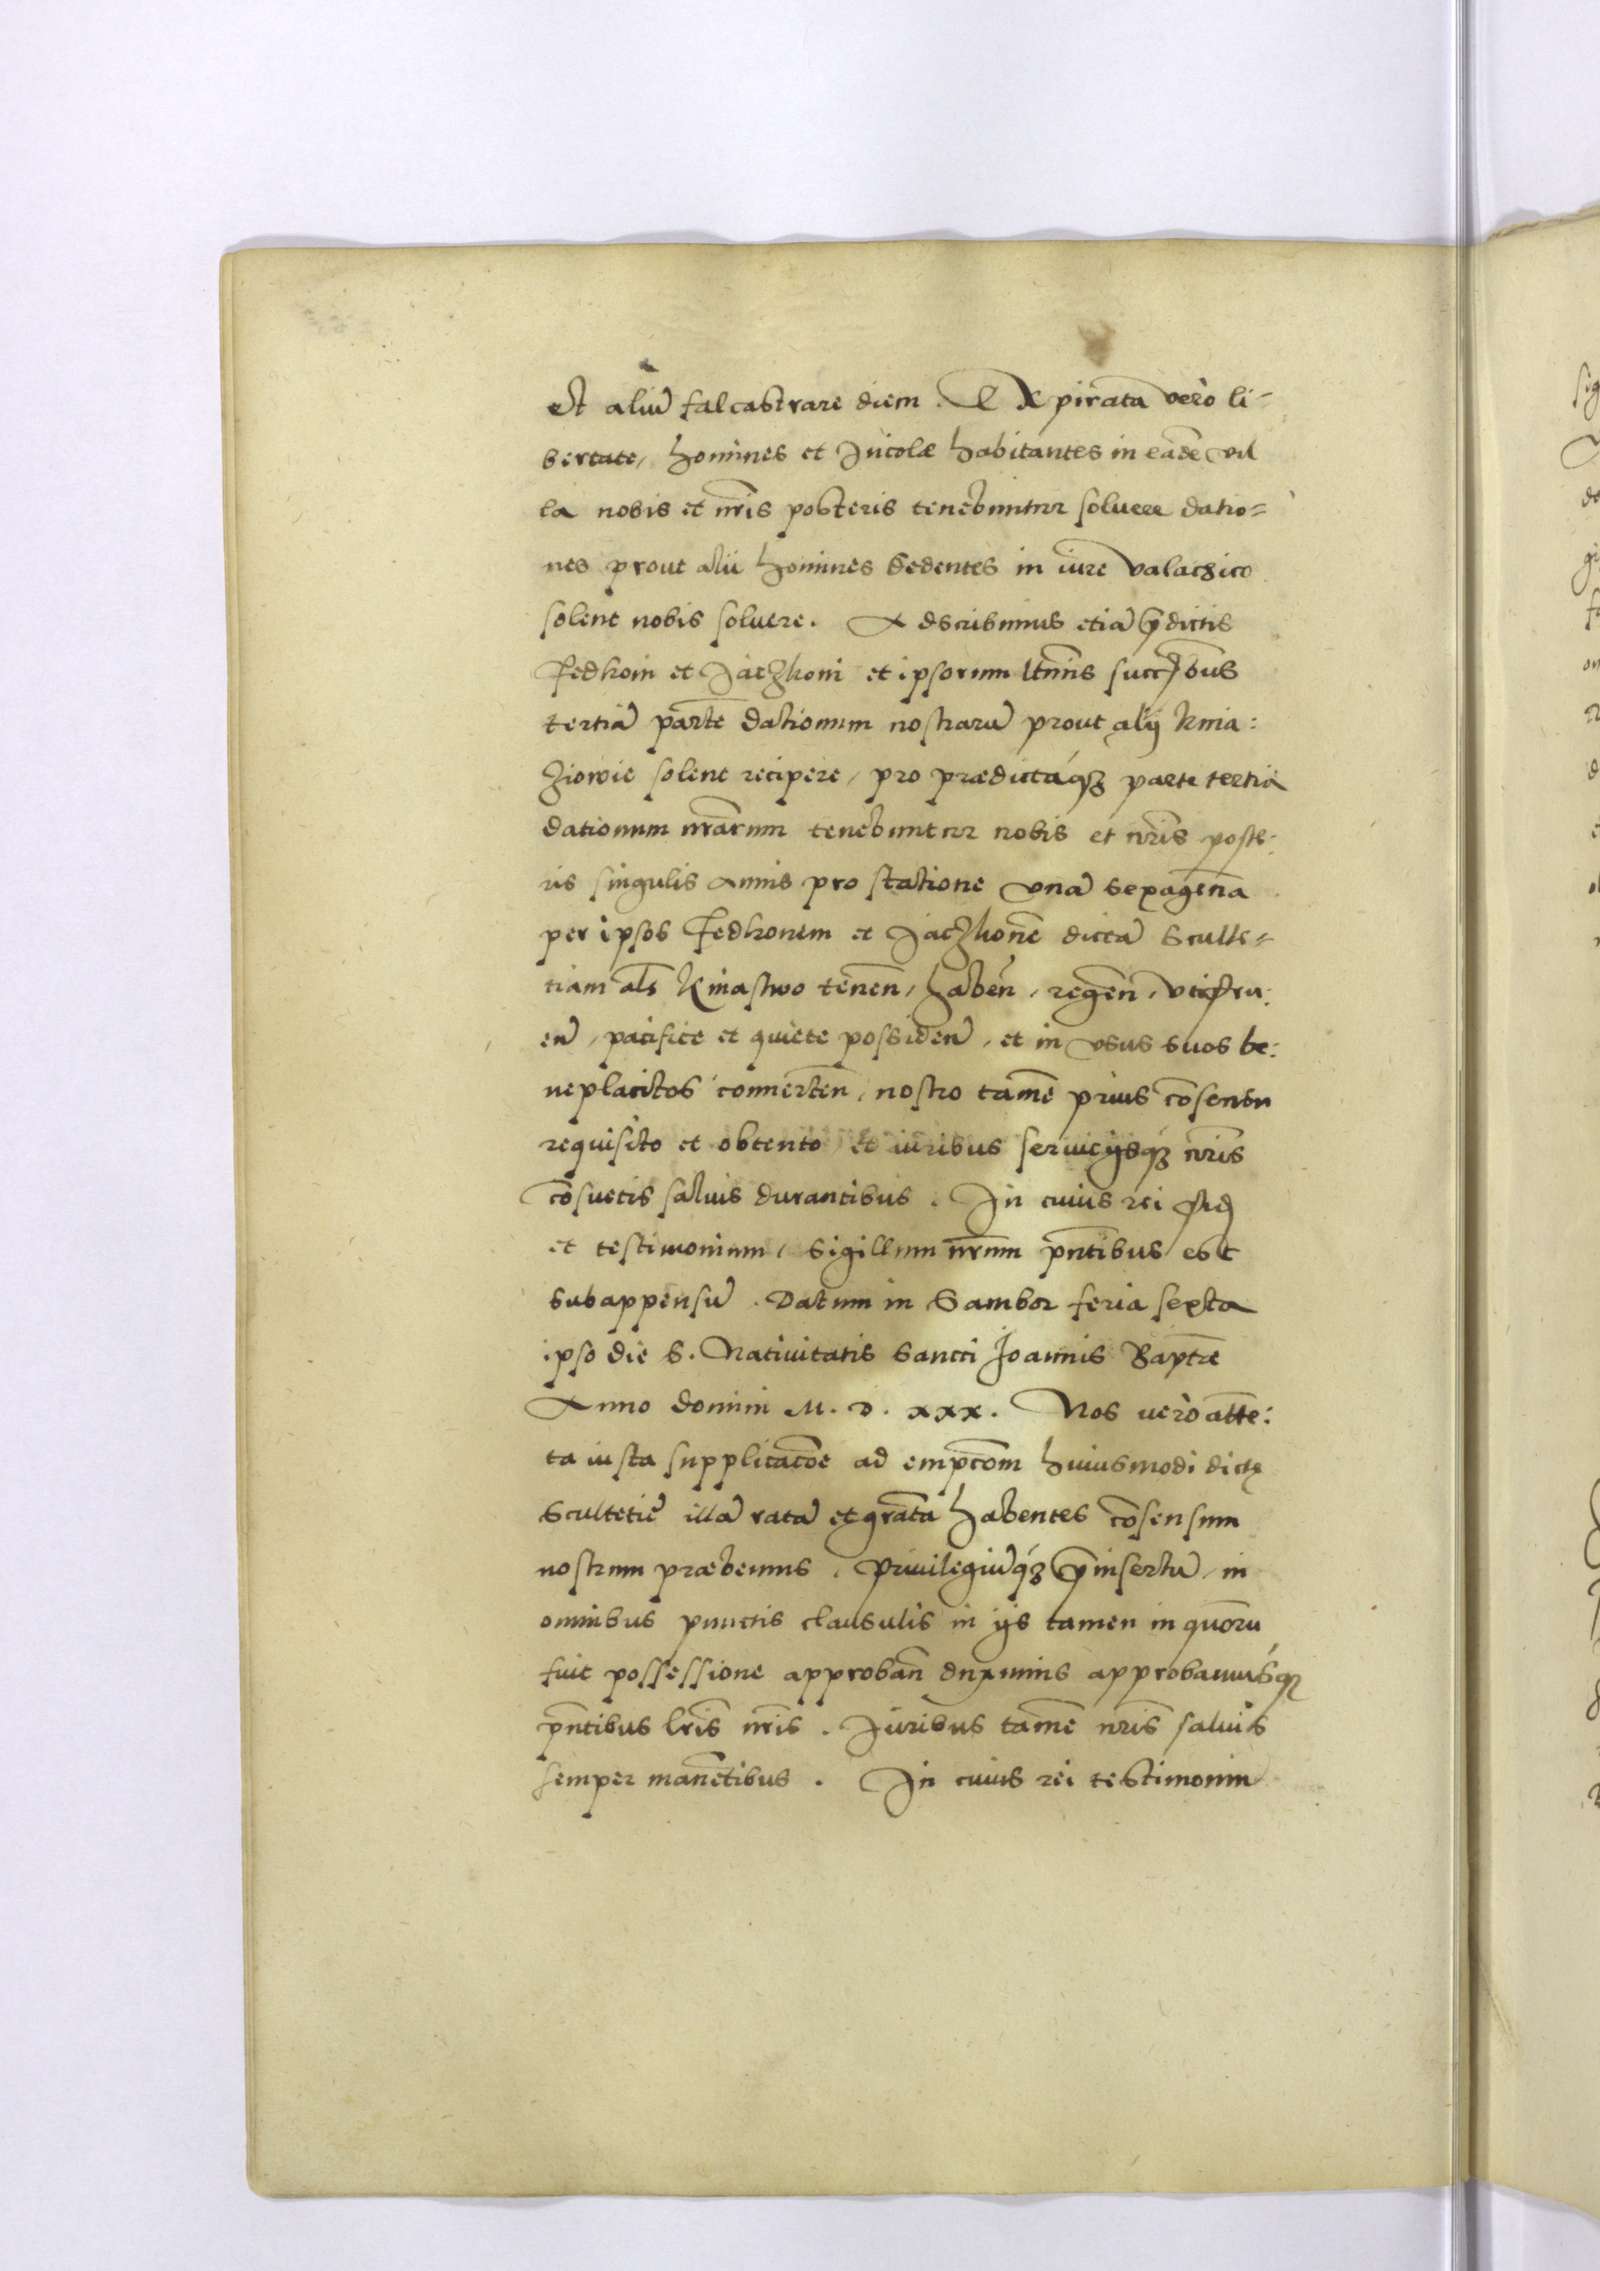 et aliũ falcastrare diem. EXpirata verò li-
bertate, homines et Incolæ habitantes in eadẽ vil
la nobis et nr̃is posteris tenebuntur soluere datio=
nes prout alii homines sedentes in iure valachico
solent nobis soluere. Adscribimus etiã p̃dictis
Fedkoni et Jaczkoni et ipsorum ltĩmis succ̃ibus
tertiã partẽ dationum nostrarũ prout alij knia:
ziowie solent recipere, pro prædictáq; parte tertia
dationum nr̃arum tenebuntur nobis et nr̃is poste:
ris singulis annis pro statione vnã sexagena
per ipsos Fedkonem et Jaczkonẽ dictã sculte=
tiam al̃s Kniastwo tenen̄, haben̄, regen̄, vtifru:
en̄, pacifice et quiete possiden̄, et in vsus suos be:
neplacitos conuerten̄, nostro tamẽ prius cõsensu
requisito et obtento, et iuribus seruicijsq; nr̃is
cõsuetis saluis durantibus. In cuius rei fid̃
et testimonium, sigillum nr̃um pn̄tibus est
subappensũ. Datum in Sambor feria sexta
ipso die S. Natiuitatis sancti Joannis Baptæ
Anno domini M. D. xxx. Nos verò atte:
ta iusta supplicacõe ad empcõm huiusmodi dictę
Scultetiẽ illã ratã et gratã habentes cõsensum
nostrum præbemus. Priuilegiũq; p̃insertũ, in
omnibus punctis clausulis in ijs tamen in quorũ
fuit possessione approban̄ duximus approbamusq;
pn̄tibus lr̃is nr̃is. Iuribus tamẽ nr̃is saluis
semper manẽtibus. In cuius rei testimoniũ